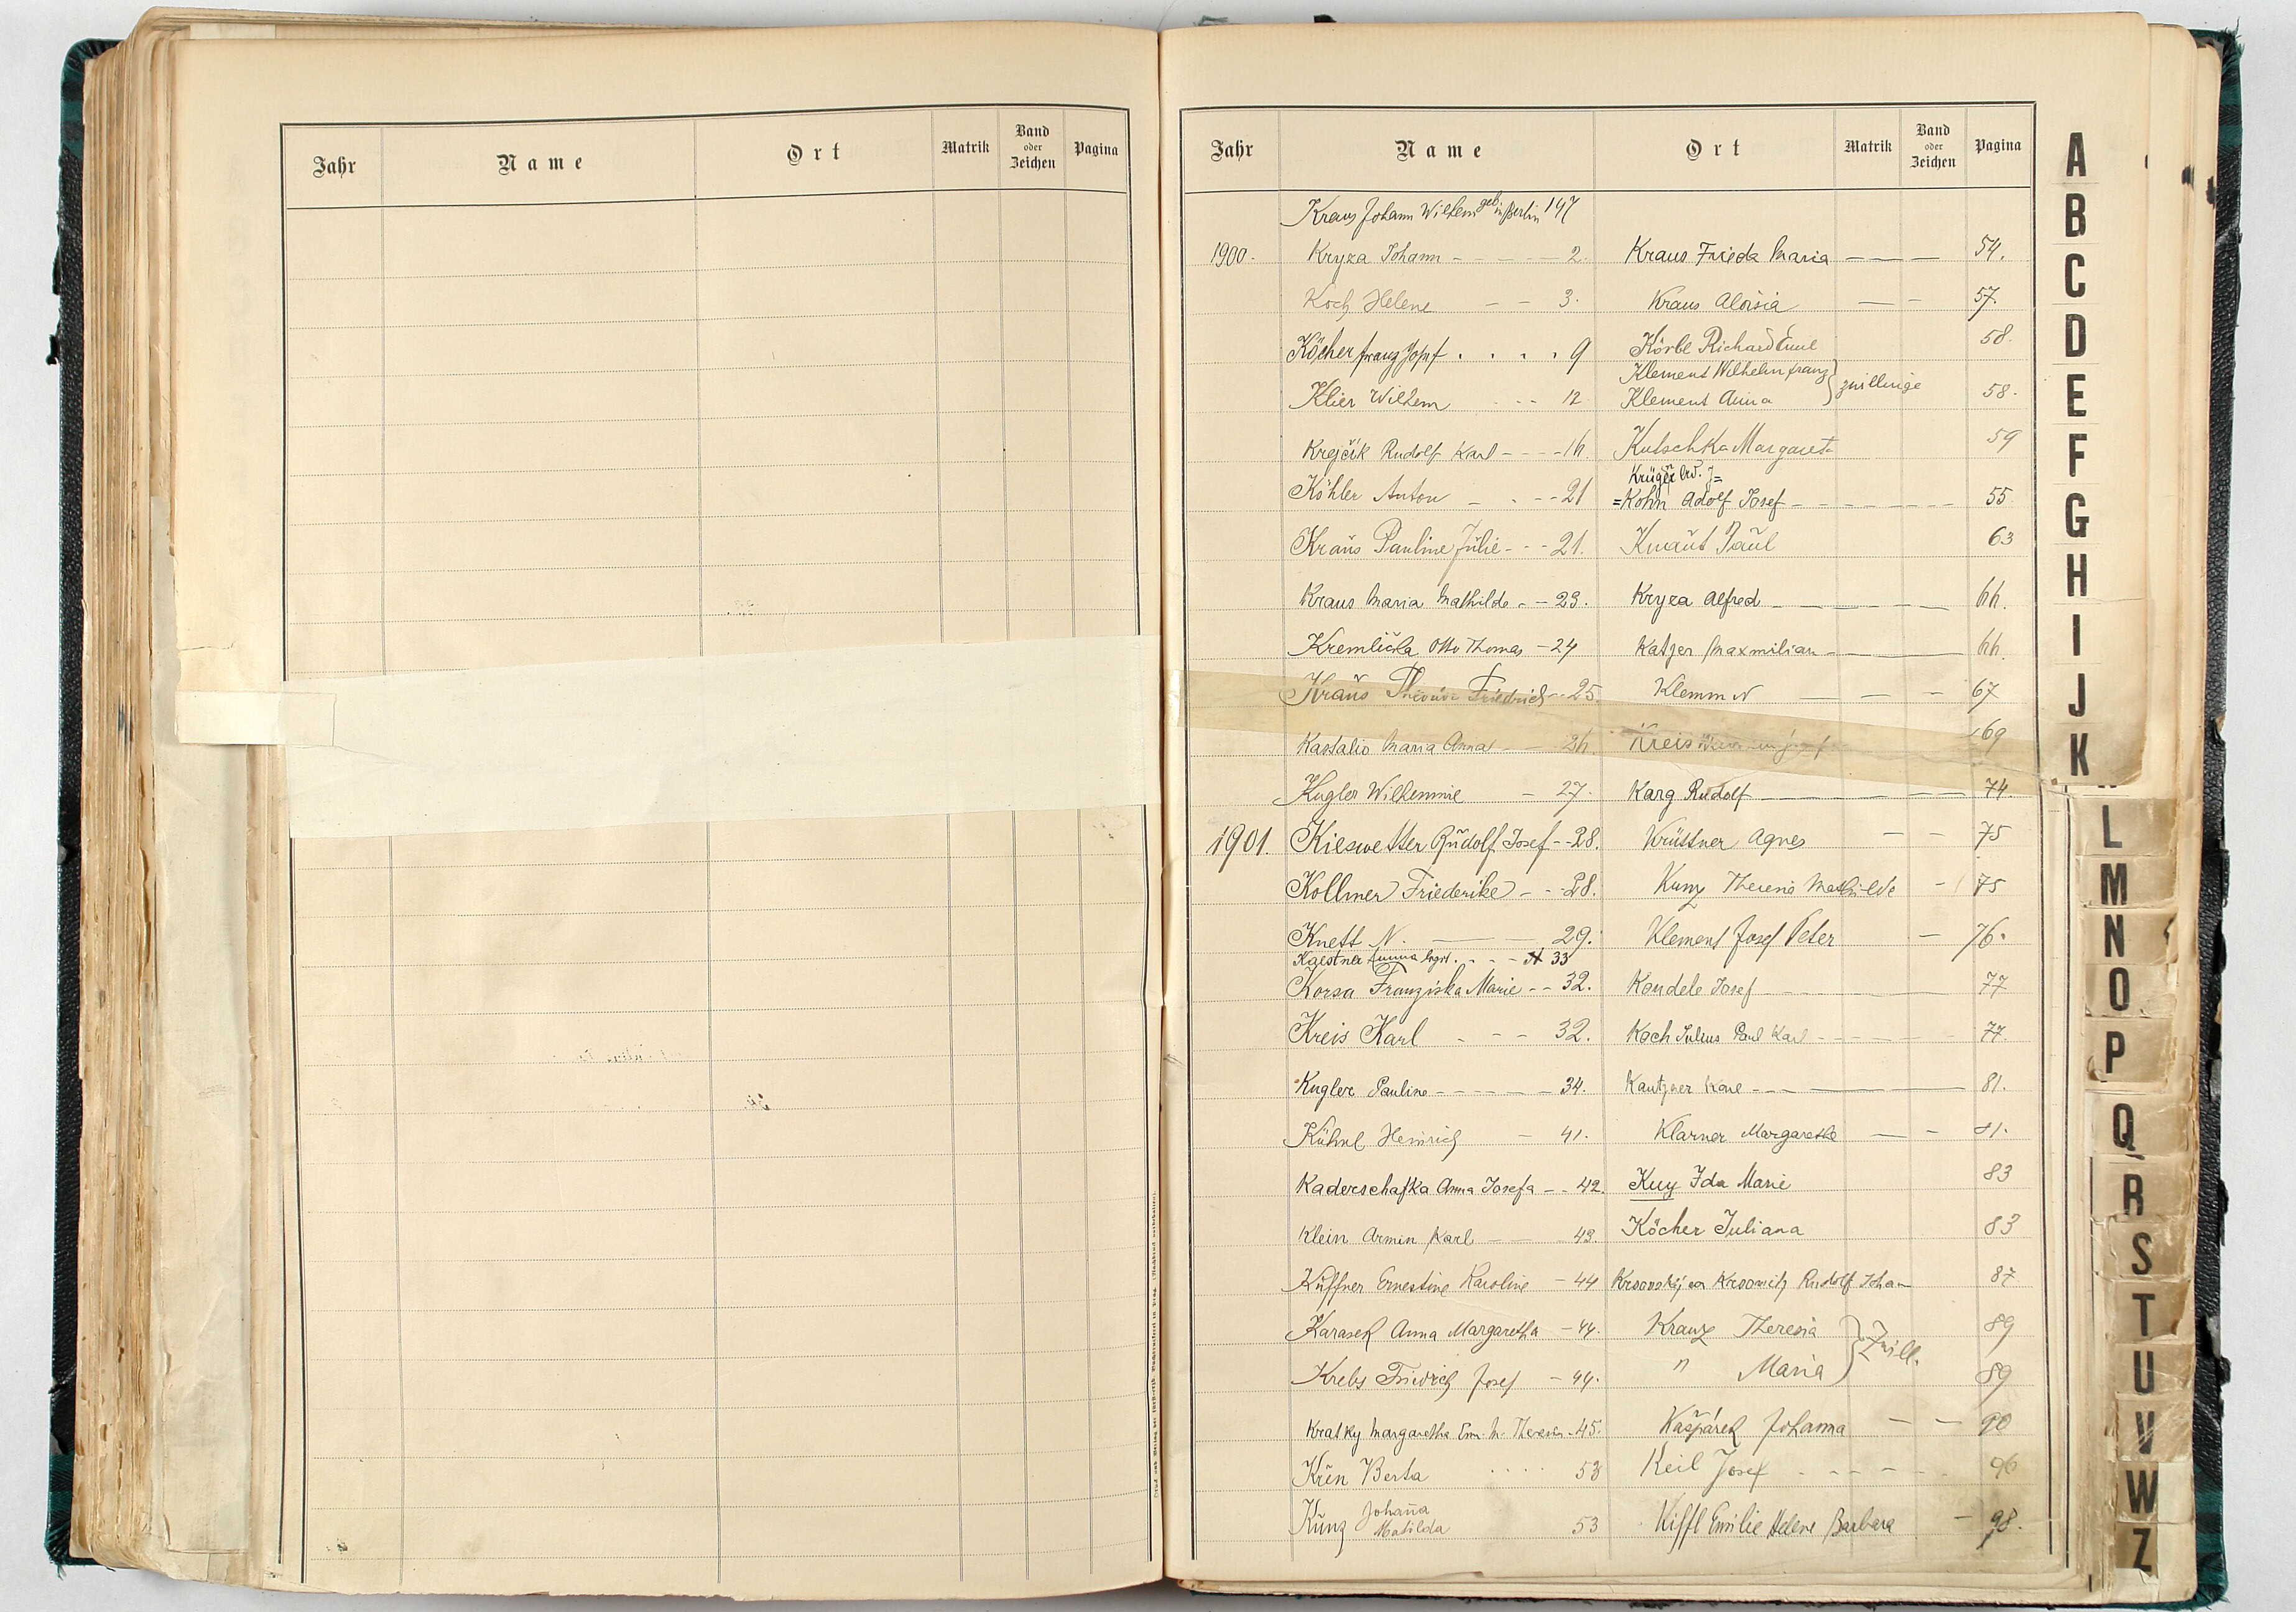 Jahr Name Ort Matrik Band oder Zeichen Pagina
Jahr Name Ort Matrik Band oder Zeichen Pagina
Kraus Johann Wilhelm geb. in Berlin 147
1900. Kryza Johann - - - - - 2. Kraus Frieda Maria - - - 54.
Koch Helene - - 3. Kraus Aloisia - - 57.
Köcher Franz Josef . . . . 9 Körbl Richard Emil 58.
Klement Wilhelm Franz } Zwillinge
Klier Wilhelm - - - 12 Klement Anna 58.
Krejčik Rudolf Karl - - - 16. Kutschka Margareta 59
Krüger
Köhler Anton - - - 21 = Kohn Adolf Josef - - - - - - 55.
Kraus Pauline Julie - - - 21. Knaut Paul 63
Kraus Maria Mathilde - - 23. Kryza Alfred - - - - 66.
Kremlička Otto Thomas - 24 Katzer Maximilian - - 66.
Kraus Friedrich - 25. Klemm N - - - 67
Kastalio Maria Anna - - 26. Kreis 69
Kugler Wilhelmine - 27. Karg Rudolf - - - - 74.
1901. Kieswetter Rudolf Josef - - 28. Krüttner Agnes - - 75
Kollmer Friederike - - 28. Kunz Theresia Mathilde - 75
Knett N. - - 29. Klement Josef Peter - 76.
Kaestner Emma . - - 33
Korsa Franziska Marie - - 32. Kondele Josef - - - 77
Kreis Karl - - - 32. Koch Julius Paul Karl - - - - 77.
Kugler Pauline - - - - - 34. Kautzner Karl - - - - 81.
Kühnl Heinrich - 41. Klarner Margarethe - - 81.
Kaderschafka Anna Josefa - - 42. Kuy Ida Marie 83
Klein Armin Karl - - 43. Köcher Juliana 83
Küffner Ernestine Karoline - 44 Rudolf Johann 87
Karasek Anna Margaretha - 44. Kranz Theresia } Zwill. 89
Krebs Friedrich Josef - 44. " Maria 89
Kratky Margaretha Em. M. Theresia - 45. Kašpárek Johanna - - 90
Kren Berta . . . . 53 Keil Josef - - - - 96
Kunz Johanna Matilda 53 Kiffl Emilie Helene Barbara - 98.
A
B
C
D
E
F
G
H
I
J
K
L
M
N
O
P
Q
R
S
T
U
V
W
Z